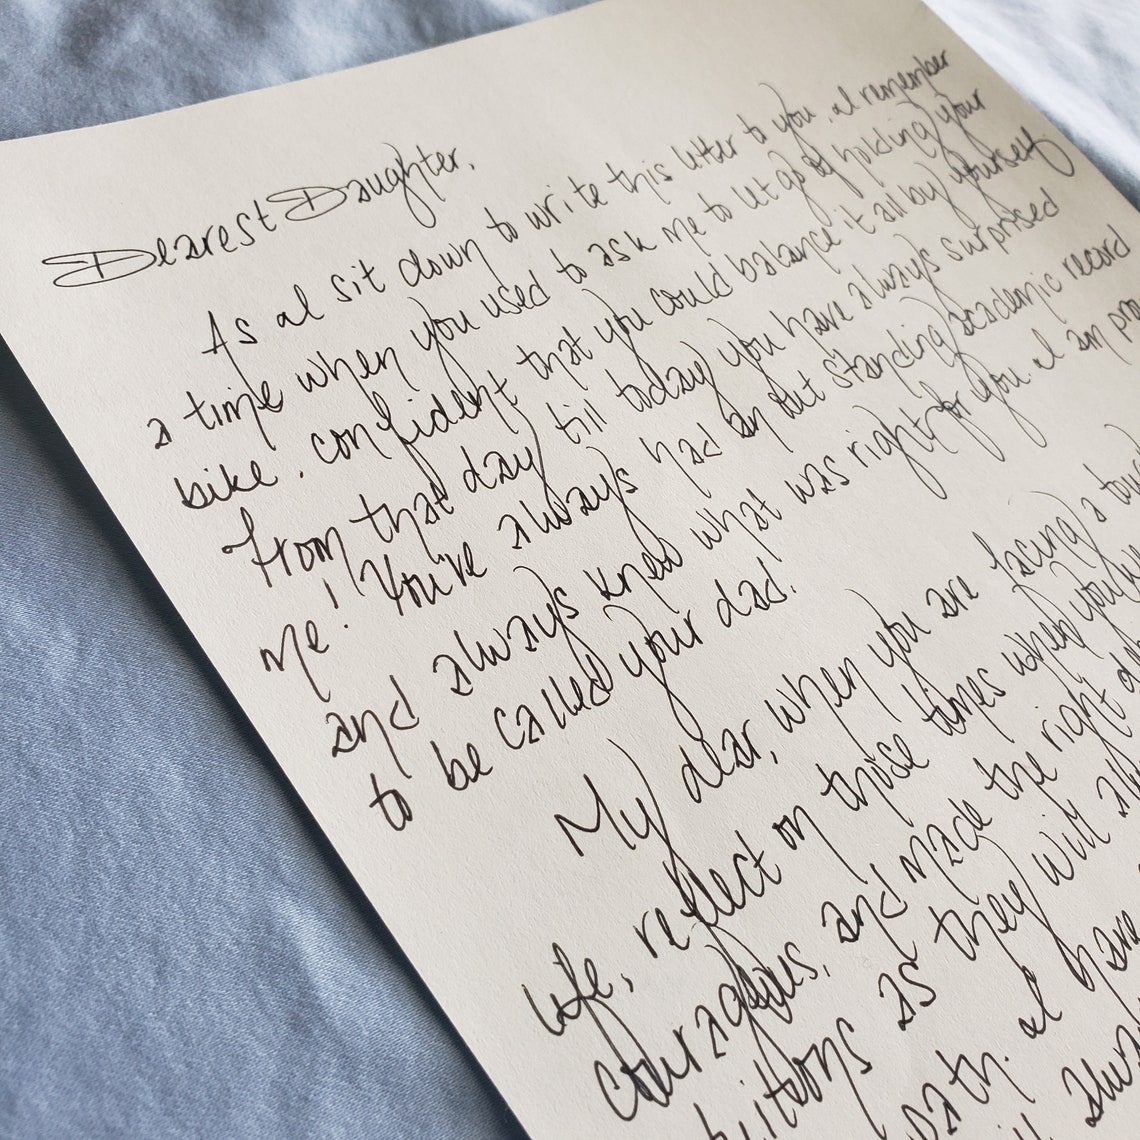 Dearest Daughter,
As I sit down to write this letter to you, I remember
a time when you used to ask me to let go of holding your
bike, confident that you could balance it all by yourself.
From that day till today you have always surprised
me! You've always had an out standing academic record
and always knew what was right for you. I am
to be called your dad!
My dear, when you are facing a
life, reflect on those times when you
courageous, and made the right
as they will
path. I have